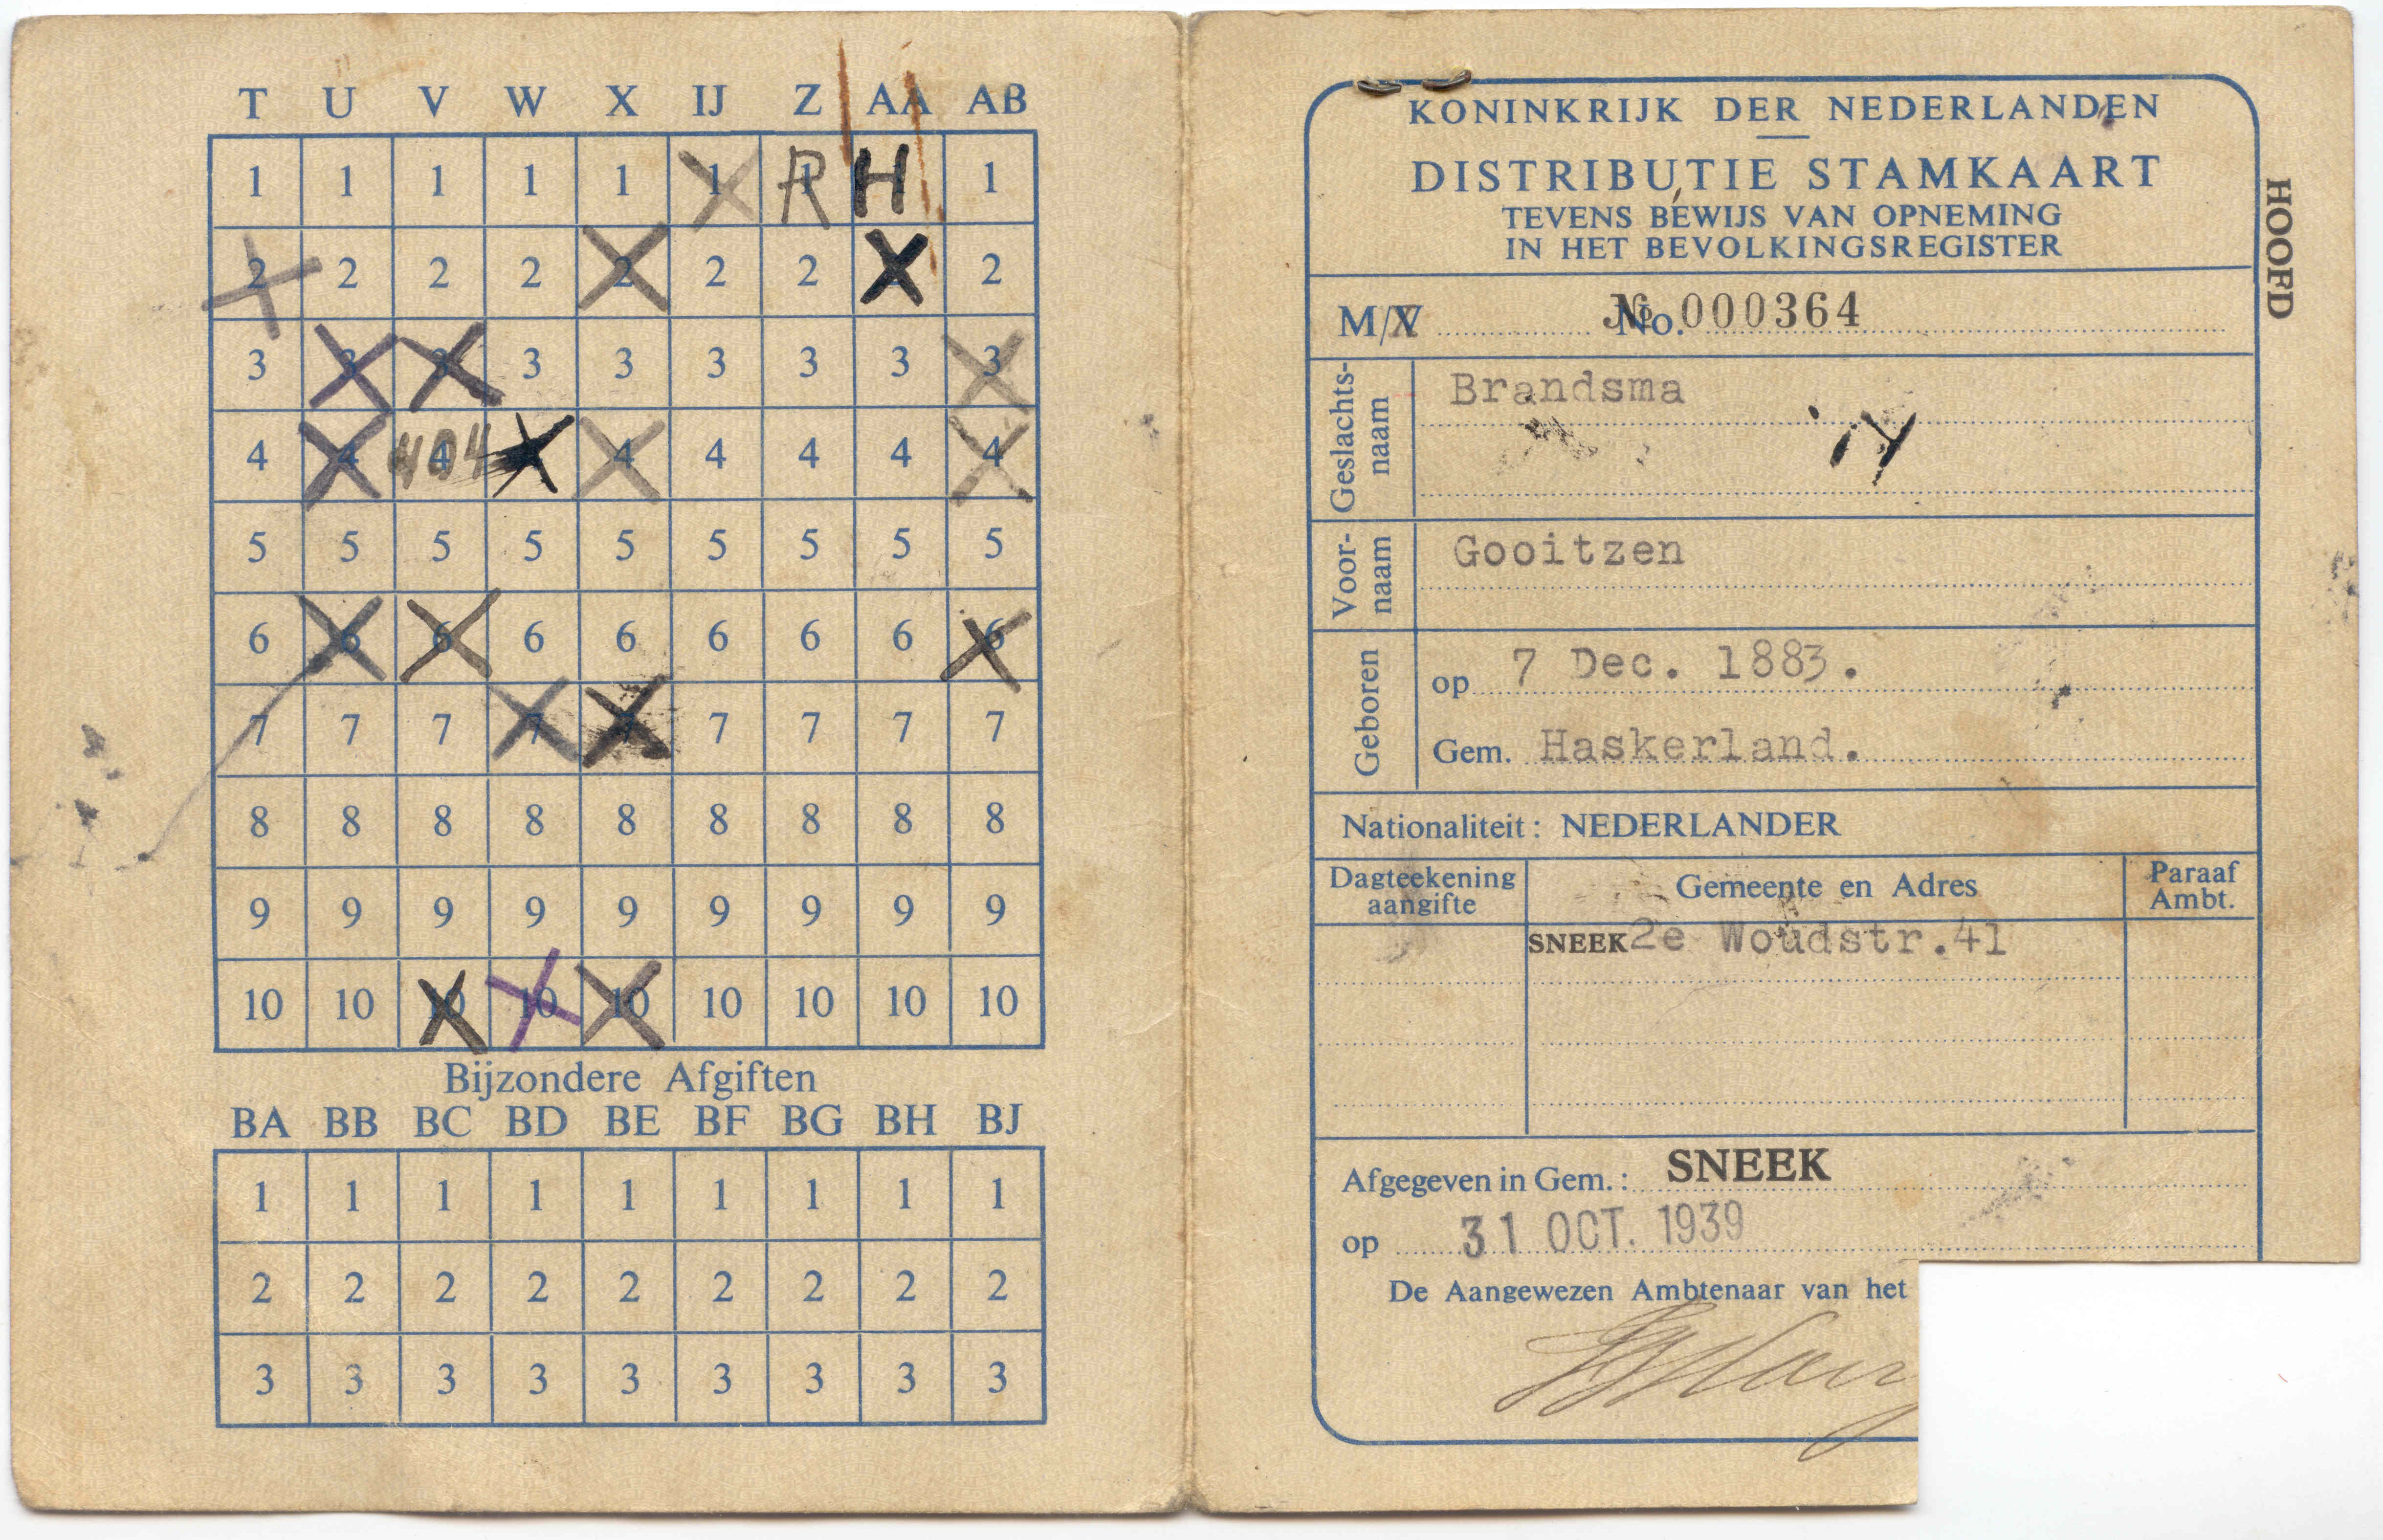 T U V W X IJ Z AA AB
1 1 1 1 1 1 R H 1
2 2 2 2 2 2 2 2
3 3 3 3 3 3 3 3 3
4 4 404 4 4 4 4 4
5 5 5 5 5 5 5 5 5
6 6 6 6 6 6 6 6 6
7 7 7 7 7 7 7 7 7
8 8 8 8 8 8 8 8 8
9 9 9 9 9 9 9 9 9
10 10 10 10 10 10 10 10 10
Bijzondere Afgiften
BA BB BC BD BE BF BG BH BJ
1 1 1 1 1 1 1 1 1
2 2 2 2 2 2 2 2 2
3 3 3 3 3 3 3 3 3
KONINKRIJK DER NEDERLANDEN
DISTRIBUTIE STAMKAART
TEVENS BEWIJS VAN OPNEMING
IN HET BEVOLKINGSREGISTER
HOOFD
M/V No. № 000364
Geslachts-
naam
Brandsma
Voor-
naam
Gooitzen
Geboren
op 7 Dec. 1883.
Gem. Haskerland.
Nationaliteit: NEDERLANDER
Dagteekening
aangifte
Gemeente en Adres
Paraaf
Ambt.
SNEEK 2e Woudstr.41
Afgegeven in Gem.: SNEEK
op 31 OCT. 1939
De Aangewezen Ambtenaar van het